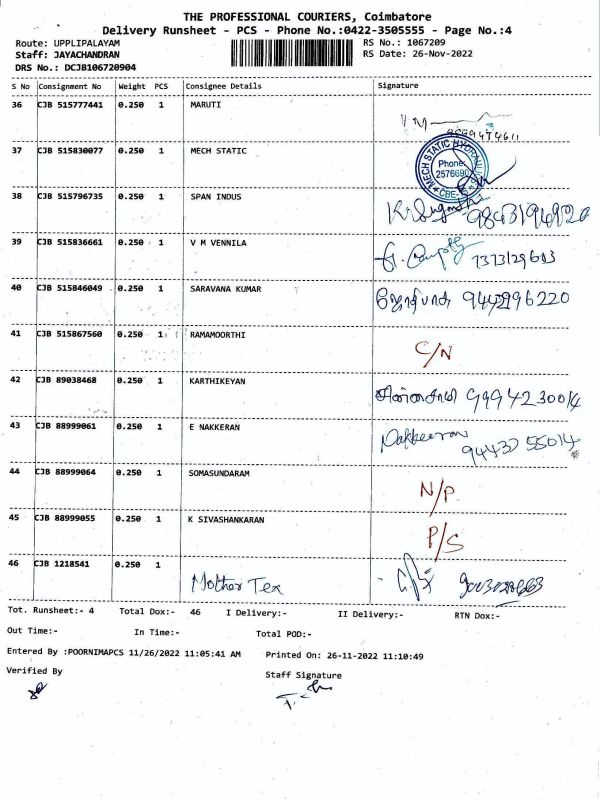 THE PROFESSIONAL COURIERS, Coimbatore
Delivery Runsheet - PCS - Phone No.:0422-3505555 - Page No.:4
Route: UPPLIPALAYAM RS No.: 1067209
Staff: JAYACHANDRAN RS Date: 26-Nov-2022
DRS No.: DCJB106720904
S No Consignment No Weight PCS Consignee Details Signature
36 CJB 515777441 0.250 1 MARUTI
37 CJB 515830077 0.250 1 MECH STATIC
MECH STATIC
Phone:
CBE-
38 CJB 515796735 0.250 1 SPAN INDUS
39 CJB 515836661 0.250 1 V M VENNILA
40 CJB 515846049 0.250 1 SARAVANA KUMAR
41 CJB 515867560 0.250 1 RAMAMOORTHI C/N
42 CJB 89038468 0.250 1 KARTHIKEYAN
43 CJB 88999061 0.250 1 E NAKKERAN Nakkeeran
44 CJB 88999064 0.250 1 SOMASUNDARAM N/P
45 CJB 88999055 0.250 1 K SIVASHANKARAN P/S
46 CJB 1218541 0.250 1 Mother Tex
Tot. Runsheet:- 4 Total Dox:- 46 I Delivery:- II Delivery:- RTN Dox:-
Out Time:- In Time:- Total POD:-
Entered By :POORNIMAPCS 11/26/2022 11:05:41 AM Printed On: 26-11-2022 11:10:49
Verified By Staff Signature